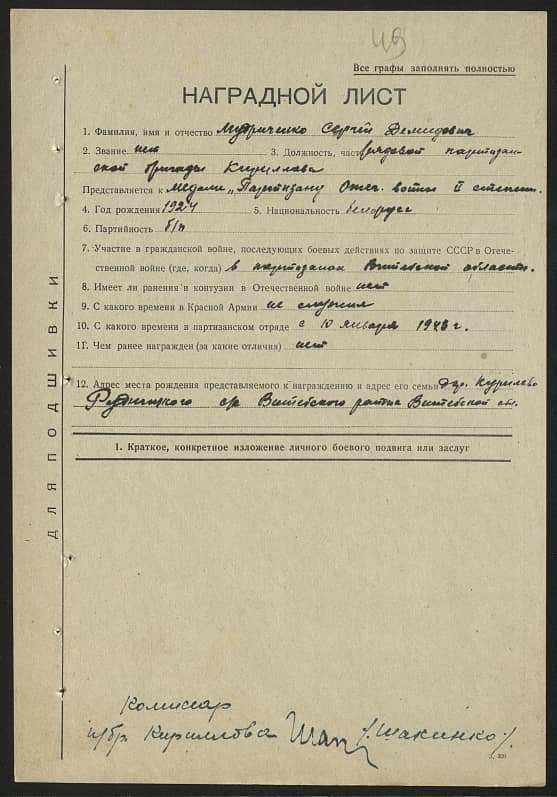 49
Все графы заполнять полностью
НАГРАДНОЙ ЛИСТ
1. Фамилия, имя и отчество Мудриченко Сергей Демидович
2. Звание нет 3. Должность, часть рядовой партизан-
ской бригады Кириллова
Представляется к медали „Партизану Отеч. войны II степени.
4. Год рождения 1924 5. Национальность белорус
6. Партийность б/п
7. Участие в гражданской войне, последующих боевых действиях по защите СССР в Отече-
ственной войне (где, когда) в партизанах Витебской области.
8. Имеет ли ранения и контузии в Отечественной войне нет
9. С какого времени в Красной Армии не служил
10. С какого времени в партизанском отряде с 10 января 1943 г.
11. Чем ранее награжден (за какие отличия) нет
12. Адрес места рождения представляемого к награждению и адрес его семьи дер. Курилево
Рудницкого с/с Витебского района Витебской обл.
1. Краткое, конкретное изложение личного боевого подвига или заслуг
ДЛЯ ПОДШИВКИ
Комиссар
п/бр Кириллова Шак /Шакинко/.